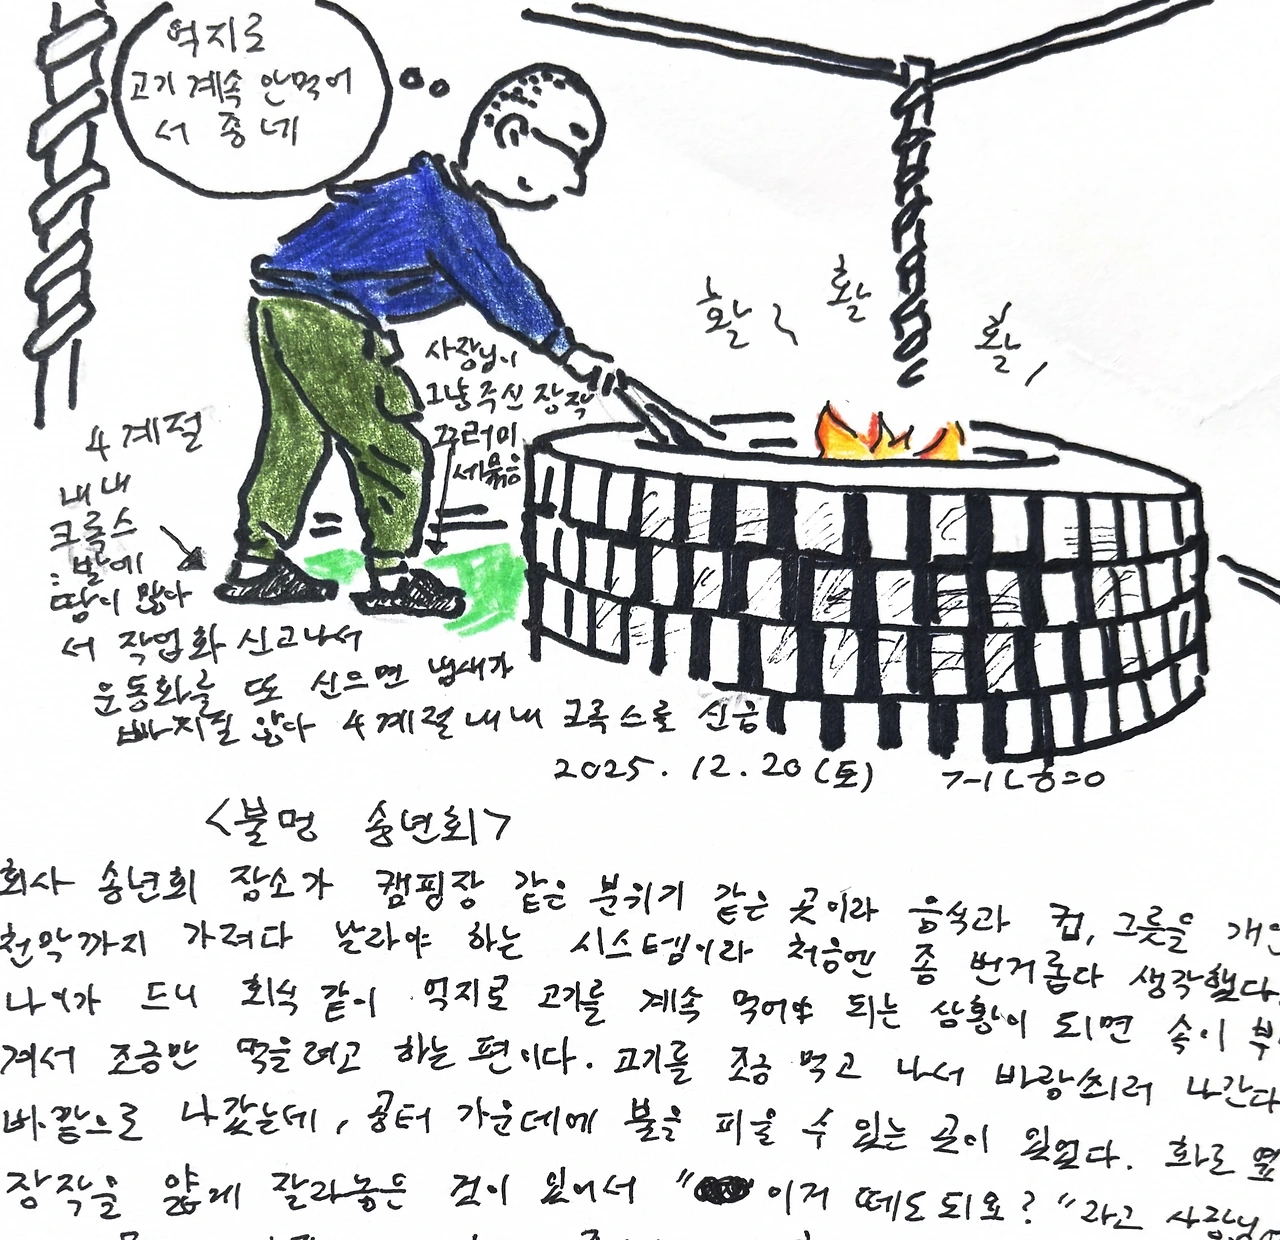 억지로
고기 계속 안먹어
서 좋네
활
활
활
사장님이
그냥 주신 장작
꾸러미
세묶음
4계절
내내
크록스
∵발에
땀이 많아
서 작업화 신고나서
운동화를 또 신으면 냄새가
빠지질 않아 4계절 내내 크록스를 신음
2025. 12. 20 (토)
<불멍 송년회>
회사 송년회 장소가 캠핑장 같은 분위기 같은 곳이라 음식과 컵, 그릇을 개인
천막까지 가져다 날라야 하는 시스템이라 처음엔 좀 번거롭다 생각했다.
나이가 드니 회식 같이 억지로 고기를 계속 먹어야 되는 상황이 되면 속이 부
껴서 조금만 먹을려고 하는 편이다. 고기를 조금 먹고 나서 바람쐬러 나간다
바깥으로 나갔는데, 공터 가운데에 불을 피울 수 있는 곳이 있었다. 화로 옆
장작을 얇게 잘라놓은 것이 있어서 "이거 떼도 되요?"라고 사장님